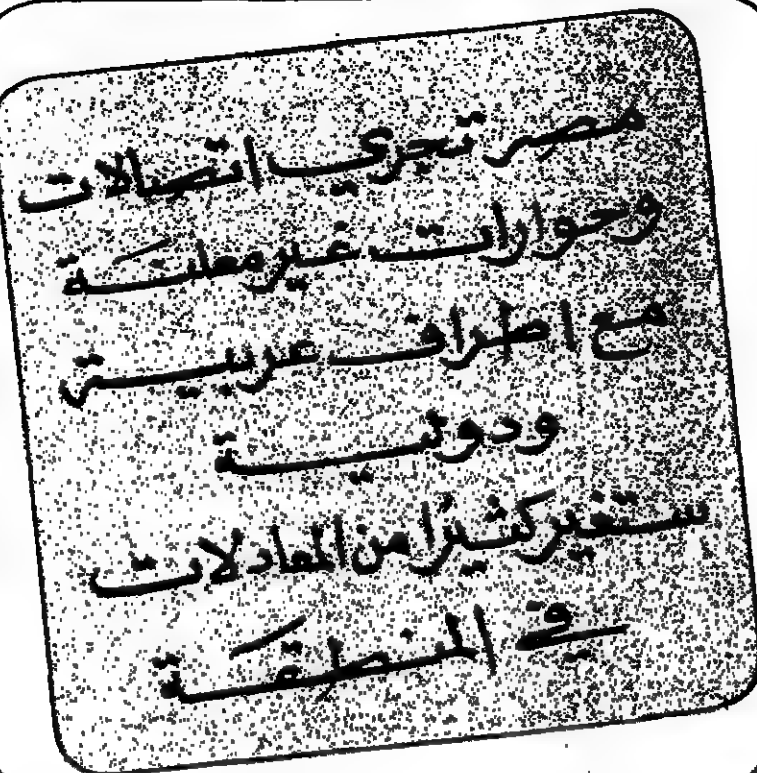 مصر تجري اتصالات
وحوارات غير معلنة
مع اطراف عربية
ودولية
ستغير كثيرًا من المعادلات
في المنطقة